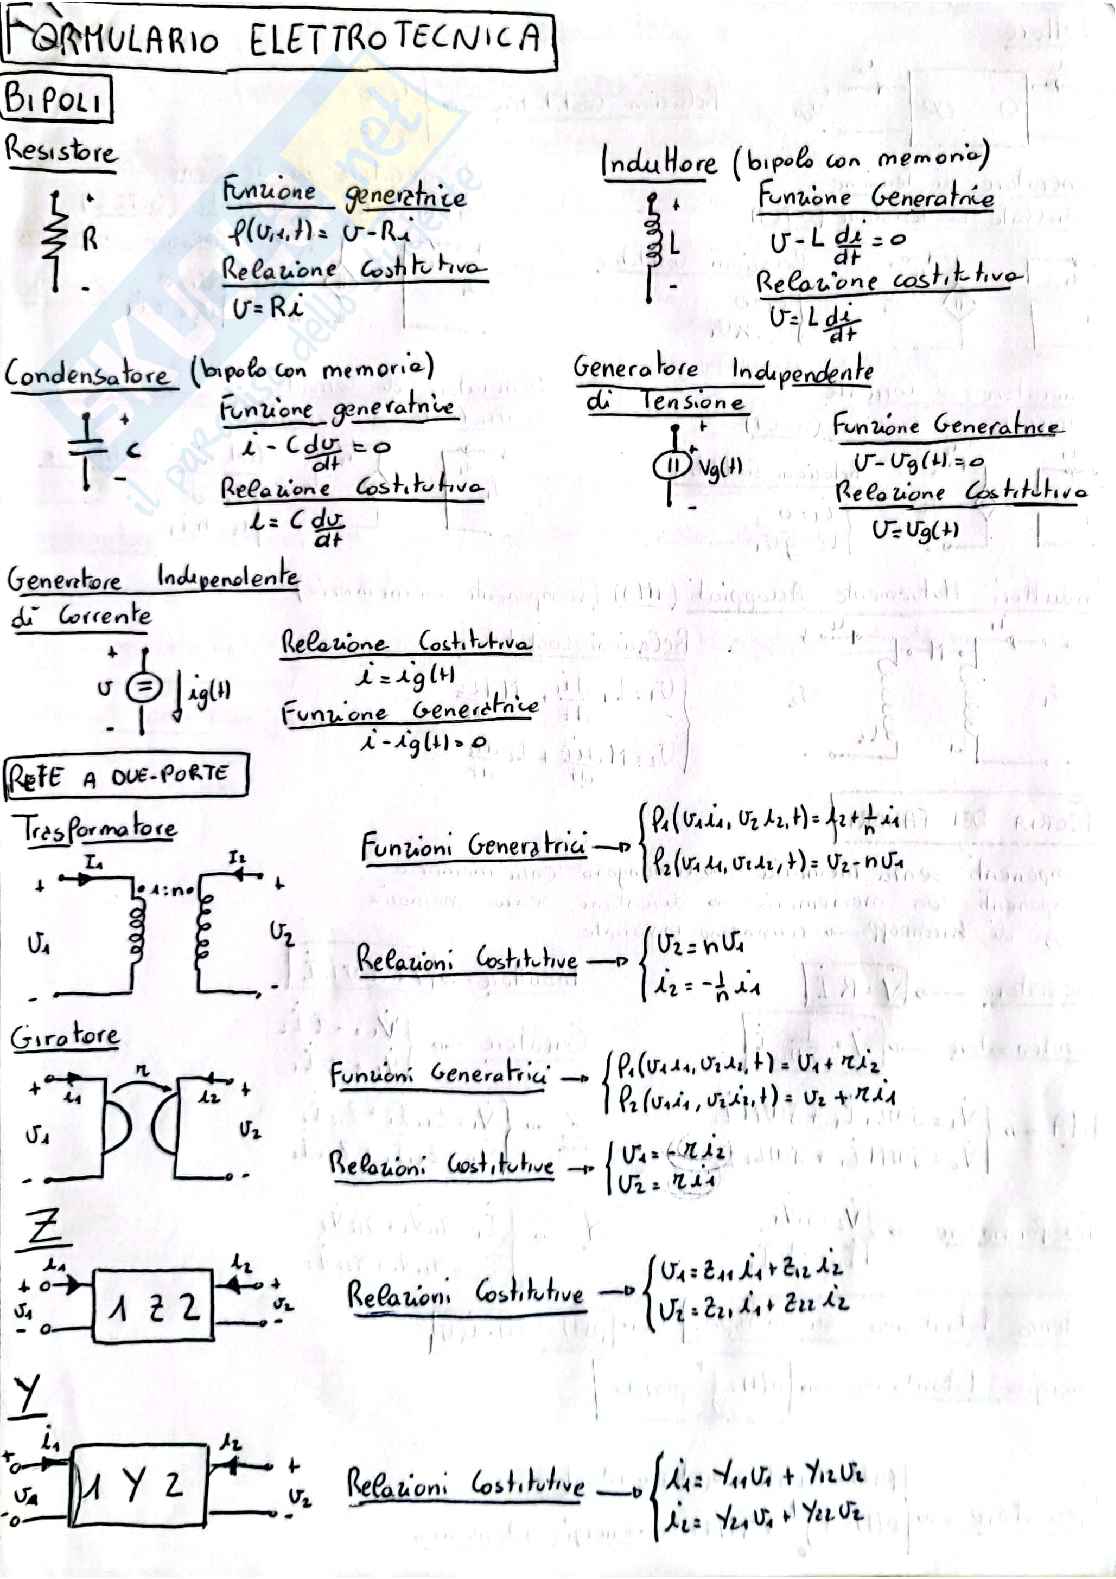 FORMULARIO ELETTROTECNICA
BIPOLI
Resistore
+
R
-
Funzione generatrice
f(v,i,t) = v-Ri
Relazione Costitutiva
v=Ri
Induttore (bipolo con memoria)
+
L
-
Funzione Generatrice
v-L di/dt = 0
Relazione costitutiva
v=L di/dt
Condensatore (bipolo con memoria)
+
C
-
Funzione generatrice
i - C dv/dt = 0
Relazione Costitutiva
i = C dv/dt
Generatore Indipendente
di Tensione
+
+
Vg(t)
-
Funzione Generatrice
v-vg(t)=0
Relazione Costitutiva
v=vg(t)
Generatore Indipendente
di Corrente
+
v
ig(t)
-
Relazione Costitutiva
i=ig(t)
Funzione Generatrice
i-ig(t)=0
RETE A DUE-PORTE
Trasformatore
I1 I2
+ 1:n +
v1 v2
- -
Funzioni Generatrici → { f1(v1i1, v2i2, t) = i2+1/n i1
f2(v1i1, v2i2, t) = v2-nv1
Relazioni Costitutive → { v2=nv1
i2=-1/n i1
Giratore
r
+ i1 i2 +
v1 v2
- -
Funzioni Generatrici → { f1(v1i1, v2i2, t) = v1+ri2
f2(v1i1, v2i2, t) = v2+ri1
Relazioni Costitutive → { v1=-ri2
v2= ri1
Z
i1 i2
+ +
v1 1 Z 2 v2
- -
Relazioni Costitutive → { v1=z11 i1+z12 i2
v2=z21 i1+z22 i2
Y
i1 i2
+ +
v1 1 Y 2 v2
- -
Relazioni Costitutive → { i1= y11v1 + y12v2
i2= y21v1 + y22v2
SKUOLA.net
il paradiso dello studente